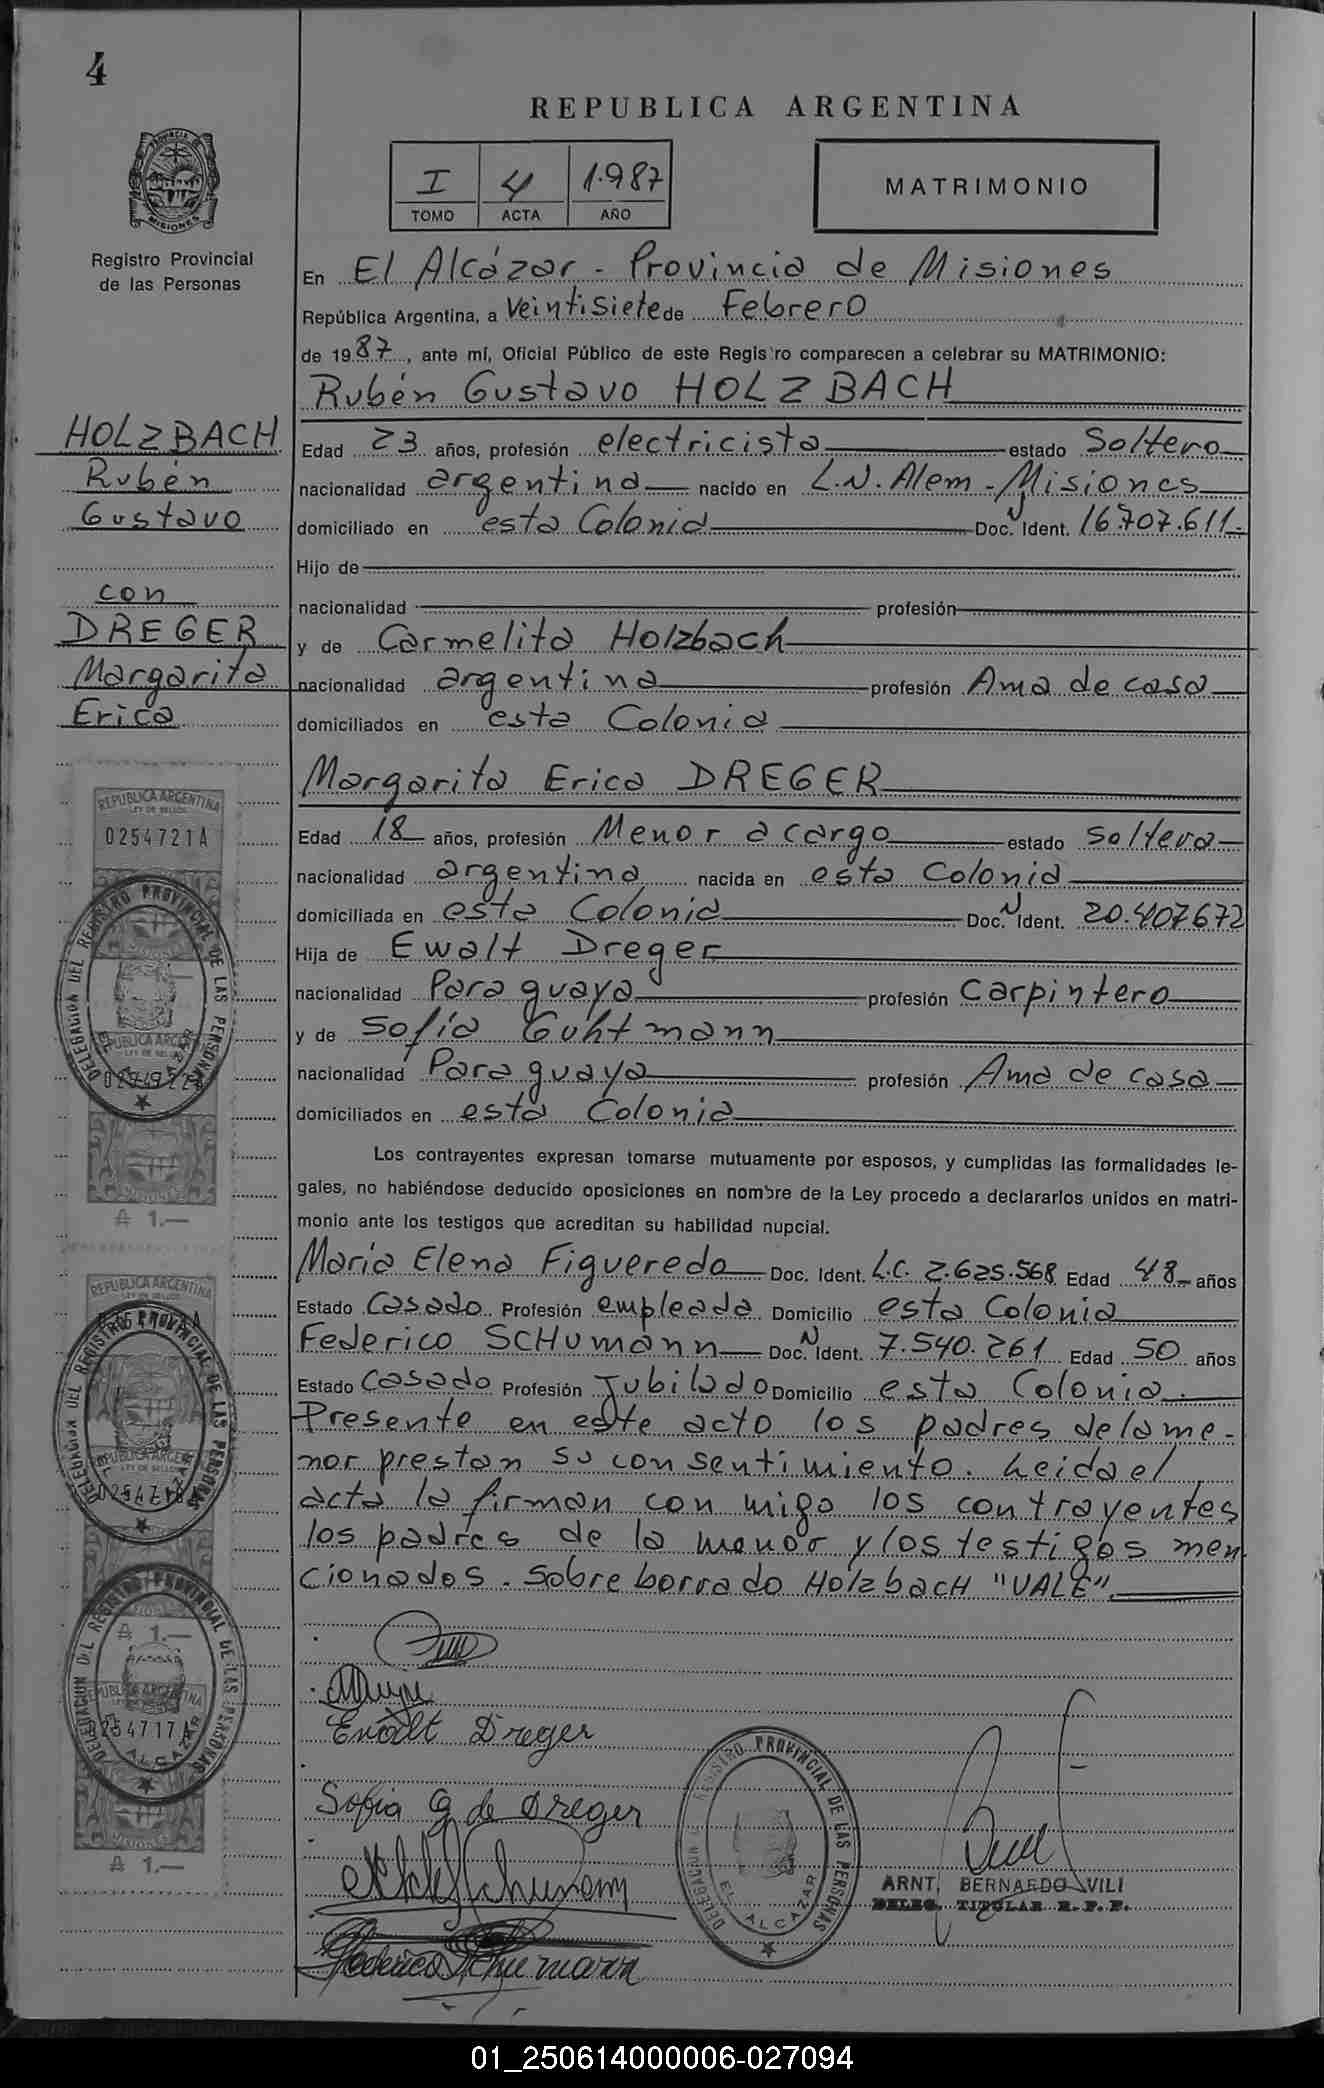 4
REPUBLICA ARGENTINA
I 4 1.987
TOMO ACTA AÑO
MATRIMONIO
PROVINCIA DE
MISIONES
Registro Provincial
de las Personas
En El Alcázar - Provincia de Misiones
República Argentina, a Veintisiete de Febrero
de 1987, ante mí, Oficial Público de este Registro comparecen a celebrar su MATRIMONIO:
Rubén Gustavo HOLZBACH
HOLZBACH
Rubén
Gustavo
con
DREGER
Margarita
Erica
Edad 23 años, profesión electricista estado Soltero
nacionalidad argentina nacido en L.N. Alem - Misiones
domiciliado en esta Colonia Doc. N Ident. 16.707.611.
Hijo de
nacionalidad profesión
y de Carmelita Holzbach
nacionalidad argentina profesión Ama de casa
domiciliados en esta Colonia
Margarita Erica DREGER
Edad 18 años, profesión Menor a cargo estado soltera
nacionalidad argentina nacida en esta Colonia
domiciliada en esta Colonia Doc. N Ident. 20.407672
Hija de Ewalt Dreger
nacionalidad Paraguaya profesión Carpintero
y de Sofía Guhtmann
nacionalidad Paraguaya profesión Ama de casa
domiciliados en esta Colonia
Los contrayentes expresan tomarse mutuamente por esposos, y cumplidas las formalidades le-
gales, no habiéndose deducido oposiciones en nombre de la Ley procedo a declararlos unidos en matri-
monio ante los testigos que acreditan su habilidad nupcial.
María Elena Figueredo Doc. Ident. L.C. 2.625.568 Edad 48 años
Estado Casado Profesión empleada Domicilio esta Colonia
Federico SCHUmann Doc. N Ident. 7.540.261 Edad 50 años
Estado Casado Profesión Jubilado Domicilio esta Colonia.
Presente en este acto los padres de la me-
nor prestan su consentimiento. Leida el
acta la firman con migo los contrayentes
los padres de la menor y los testigos men
cionados. Sobre borrado HolzbacH "VALE"
Ewalt Dreger
Sofia G de Dreger
Federico Schumann
REPUBLICA ARGENTINA
LEY DE SELLOS
0254721A
DELEGACION DEL REGISTRO PROVINCIAL DE LAS PERSONAS
EL ALCAZAR
MISIONES
A 1.—
REPUBLICA ARGENTINA
DELEGACION DEL REGISTRO PROVINCIAL DE LAS PERSONAS
EL ALCAZAR
A 1.—
DELEGACION DEL REGISTRO PROVINCIAL DE LAS PERSONAS
REPUBLICA ARGENTINA
0254717A
EL ALCAZAR
MISIONES
A 1.—
DELEGACION DEL REGISTRO PROVINCIAL DE LAS PERSONAS
EL ALCAZAR
ARNT, BERNARDO VILI
DELEG. TITULAR R. P. P.
01_250614000006-027094